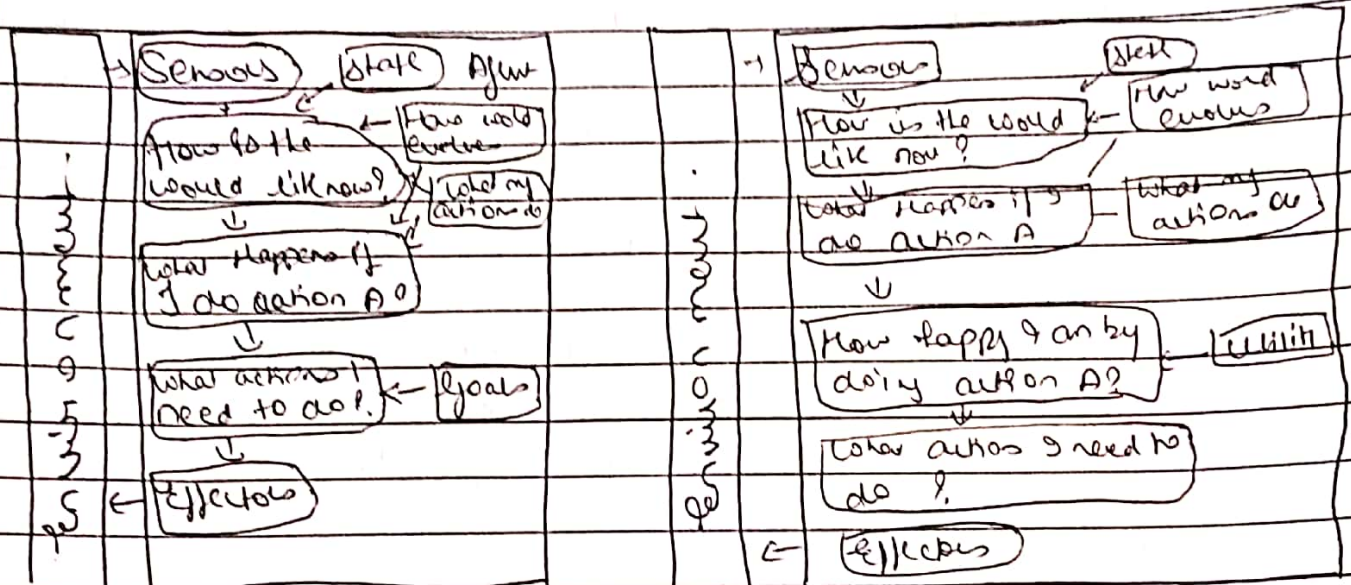 Sensors
State
Agent
How is the
would lik now?
How wold
evolve
what my
actions do
What Happens if
I do action A?
What actions I
need to do?
Goals
Effectors
Sensors
State
How is the would
lik now?
How word
evolves
What Happens if I
do action A
What my
actions do
How happy I am by
doing action A?
Utility
What actions I need to
do ?
Effectors